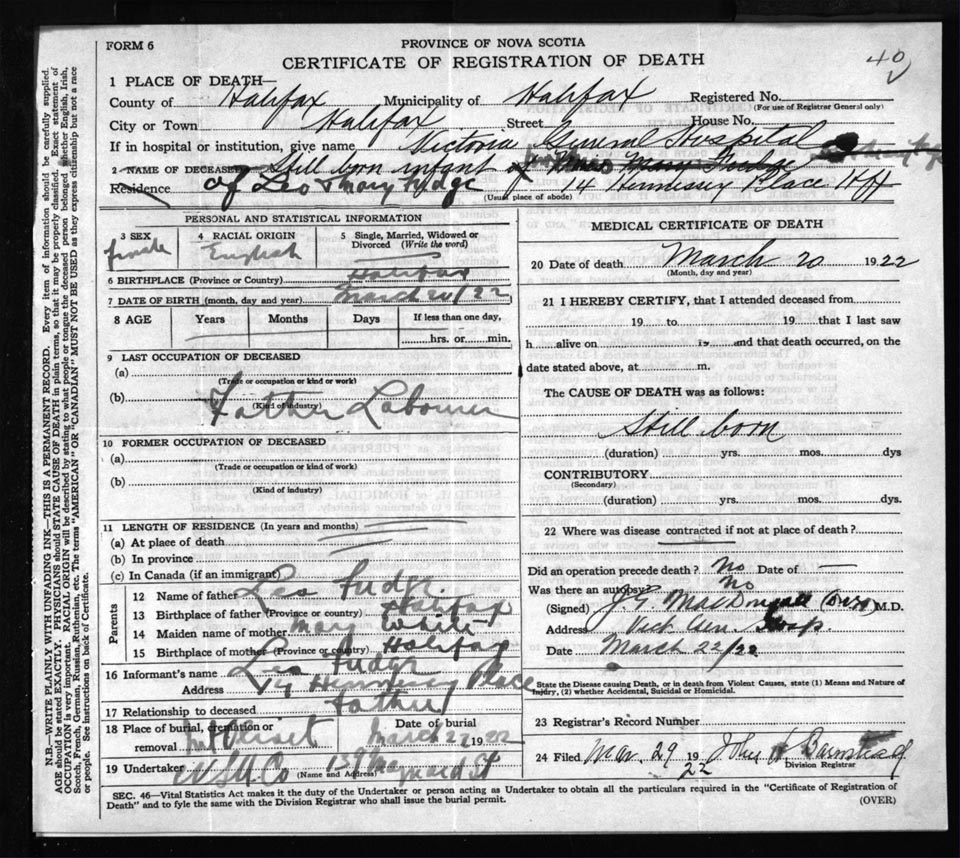 FORM 6
PROVINCE OF NOVA SCOTIA
CERTIFICATE OF REGISTRATION OF DEATH
40
1 PLACE OF DEATH—
County of Halifax Municipality of Halifax Registered No.
(For use of Registrar General only)
City or Town Halifax Street House No.
If in hospital or institution, give name Victoria General Hospital
2 NAME OF DECEASED Still born infant of Mary Fudge
of Leo & Mary Fudge
Residence 14 Hennessy Place Hfx
(Usual place of abode)
PERSONAL AND STATISTICAL INFORMATION
3 SEX
female
4 RACIAL ORIGIN
English
5 Single, Married, Widowed or Divorced (Write the word)
6 BIRTHPLACE (Province or Country) Halifax
7 DATE OF BIRTH (month, day and year) March 20/22
8 AGE Years Months Days If less than one day,
hrs. or min.
9 LAST OCCUPATION OF DECEASED
(a)
(Trade or occupation or kind or work)
(b) Father Labourer
(Kind of industry)
10 FORMER OCCUPATION OF DECEASED
(a)
(Trade or occupation or kind of work)
(b)
(Kind of industry)
11 LENGTH OF RESIDENCE (In years and months)
(a) At place of death
(b) In province
(c) In Canada (if an immigrant)
Parents
12 Name of father Leo Fudge
13 Birthplace of father (Province or country) Halifax
14 Maiden name of mother Mary White
15 Birthplace of mother (Province or country) Halifax
16 Informant's name Leo Fudge
Address 14 Hennessy Place
17 Relationship to deceased Father
18 Place of burial, cremation or removal Mt Olivet Date of burial March 22 1922
19 Undertaker Maynard St
(Name and Address)
MEDICAL CERTIFICATE OF DEATH
20 Date of death March 20 1922
(Month, day and year)
21 I HEREBY CERTIFY, that I attended deceased from
19 to 19 that I last saw
h alive on 19 and that death occurred, on the
date stated above, at m.
The CAUSE OF DEATH was as follows:
Still born
(duration) yrs. mos. dys
CONTRIBUTORY
(Secondary)
(duration) yrs. mos. dys.
22 Where was disease contracted if not at place of death?
Did an operation precede death? No Date of —
Was there an autopsy? No
(Signed) J.G. MacDougall M.D.
Address Vict. Gen. Hosp.
Date March 22/22
State the Disease causing Death, or in death from Violent Causes, state (1) Means and Nature of Injury, (2) whether Accidental, Suicidal or Homicidal.
23 Registrar's Record Number
24 Filed Mar. 29 1922 John H Barnstead
Division Registrar
SEC. 46—Vital Statistics Act makes it the duty of the Undertaker or person acting as Undertaker to obtain all the particulars required in the "Certificate of Registration of
Death" and to fyle the same with the Division Registrar who shall issue the burial permit.
(OVER)
N.B.—WRITE PLAINLY WITH UNFADING INK—THIS IS A PERMANENT RECORD. Every item of information should be carefully supplied.
AGE should be stated EXACTLY. PHYSICIANS should STATE CAUSE OF DEATH in plain terms, so that it may be properly classified. Exact statement of
OCCUPATION is very important. RACIAL ORIGIN will be described by stating to what people or tongue the deceased person belonged whether English, Irish,
Scotch, French, German, Russian, Ruthenian, etc. The terms "AMERICAN" OR "CANADIAN" MUST NOT BE USED as they express citizenship but not a race
or people. See instructions on back of Certificate.